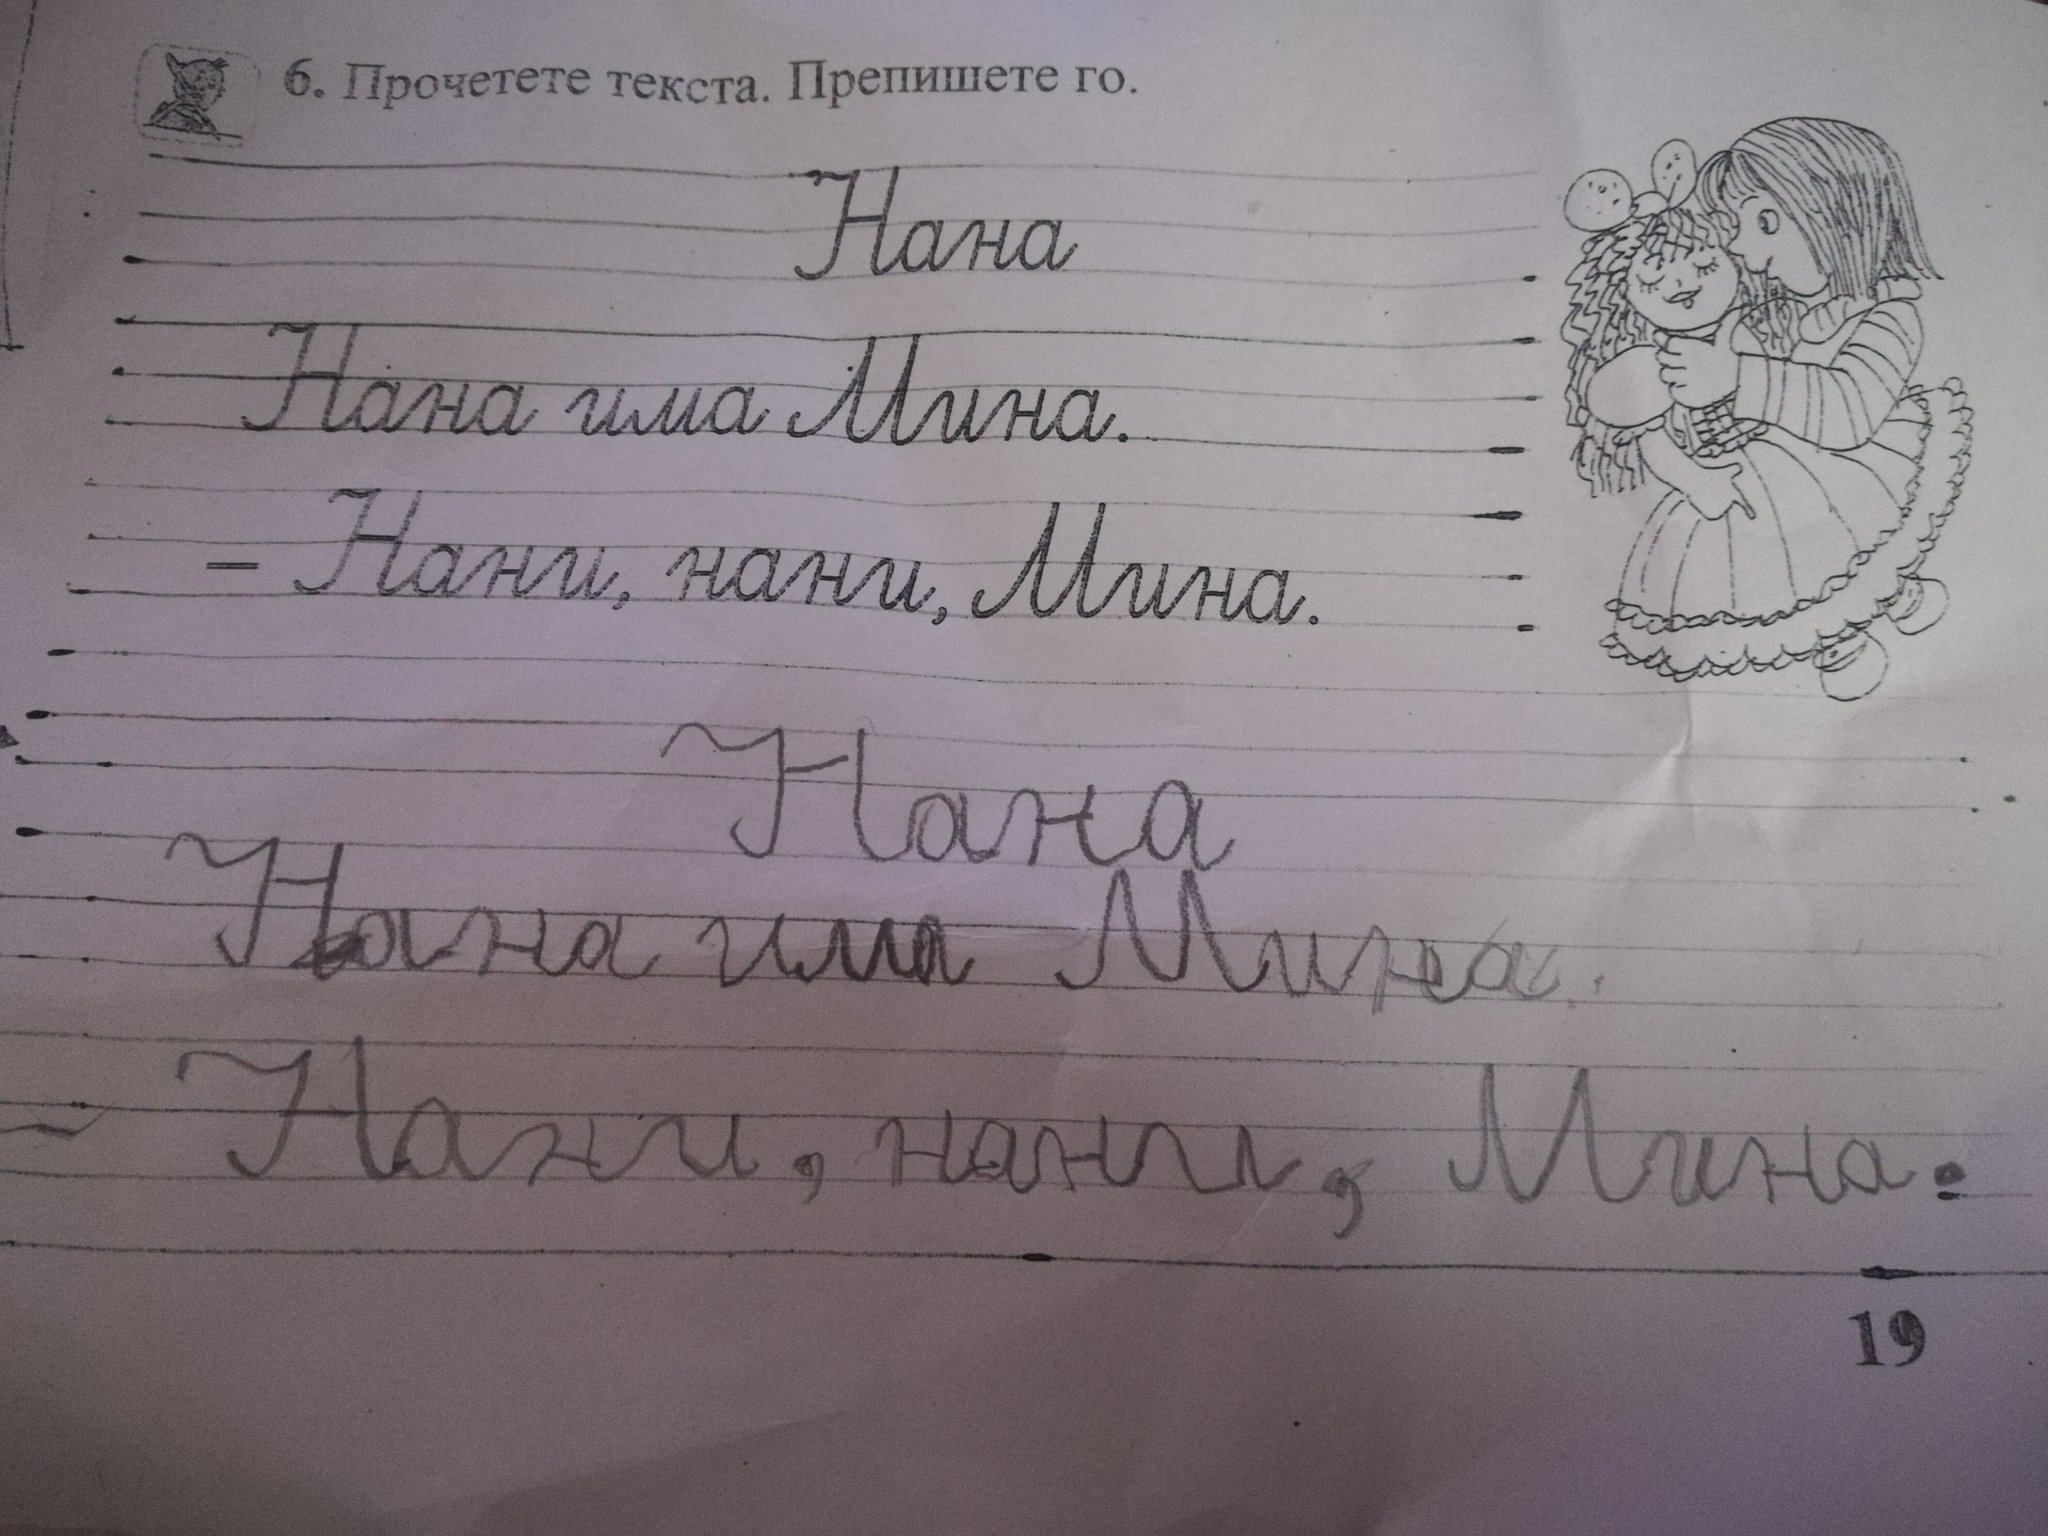 6. Прочетете текста. Препишете го.
Нана
Нана има Мина.
– Нани, нани, Мина.
Нана
Нана има Мина.
– Нани, нани, Мина.
19